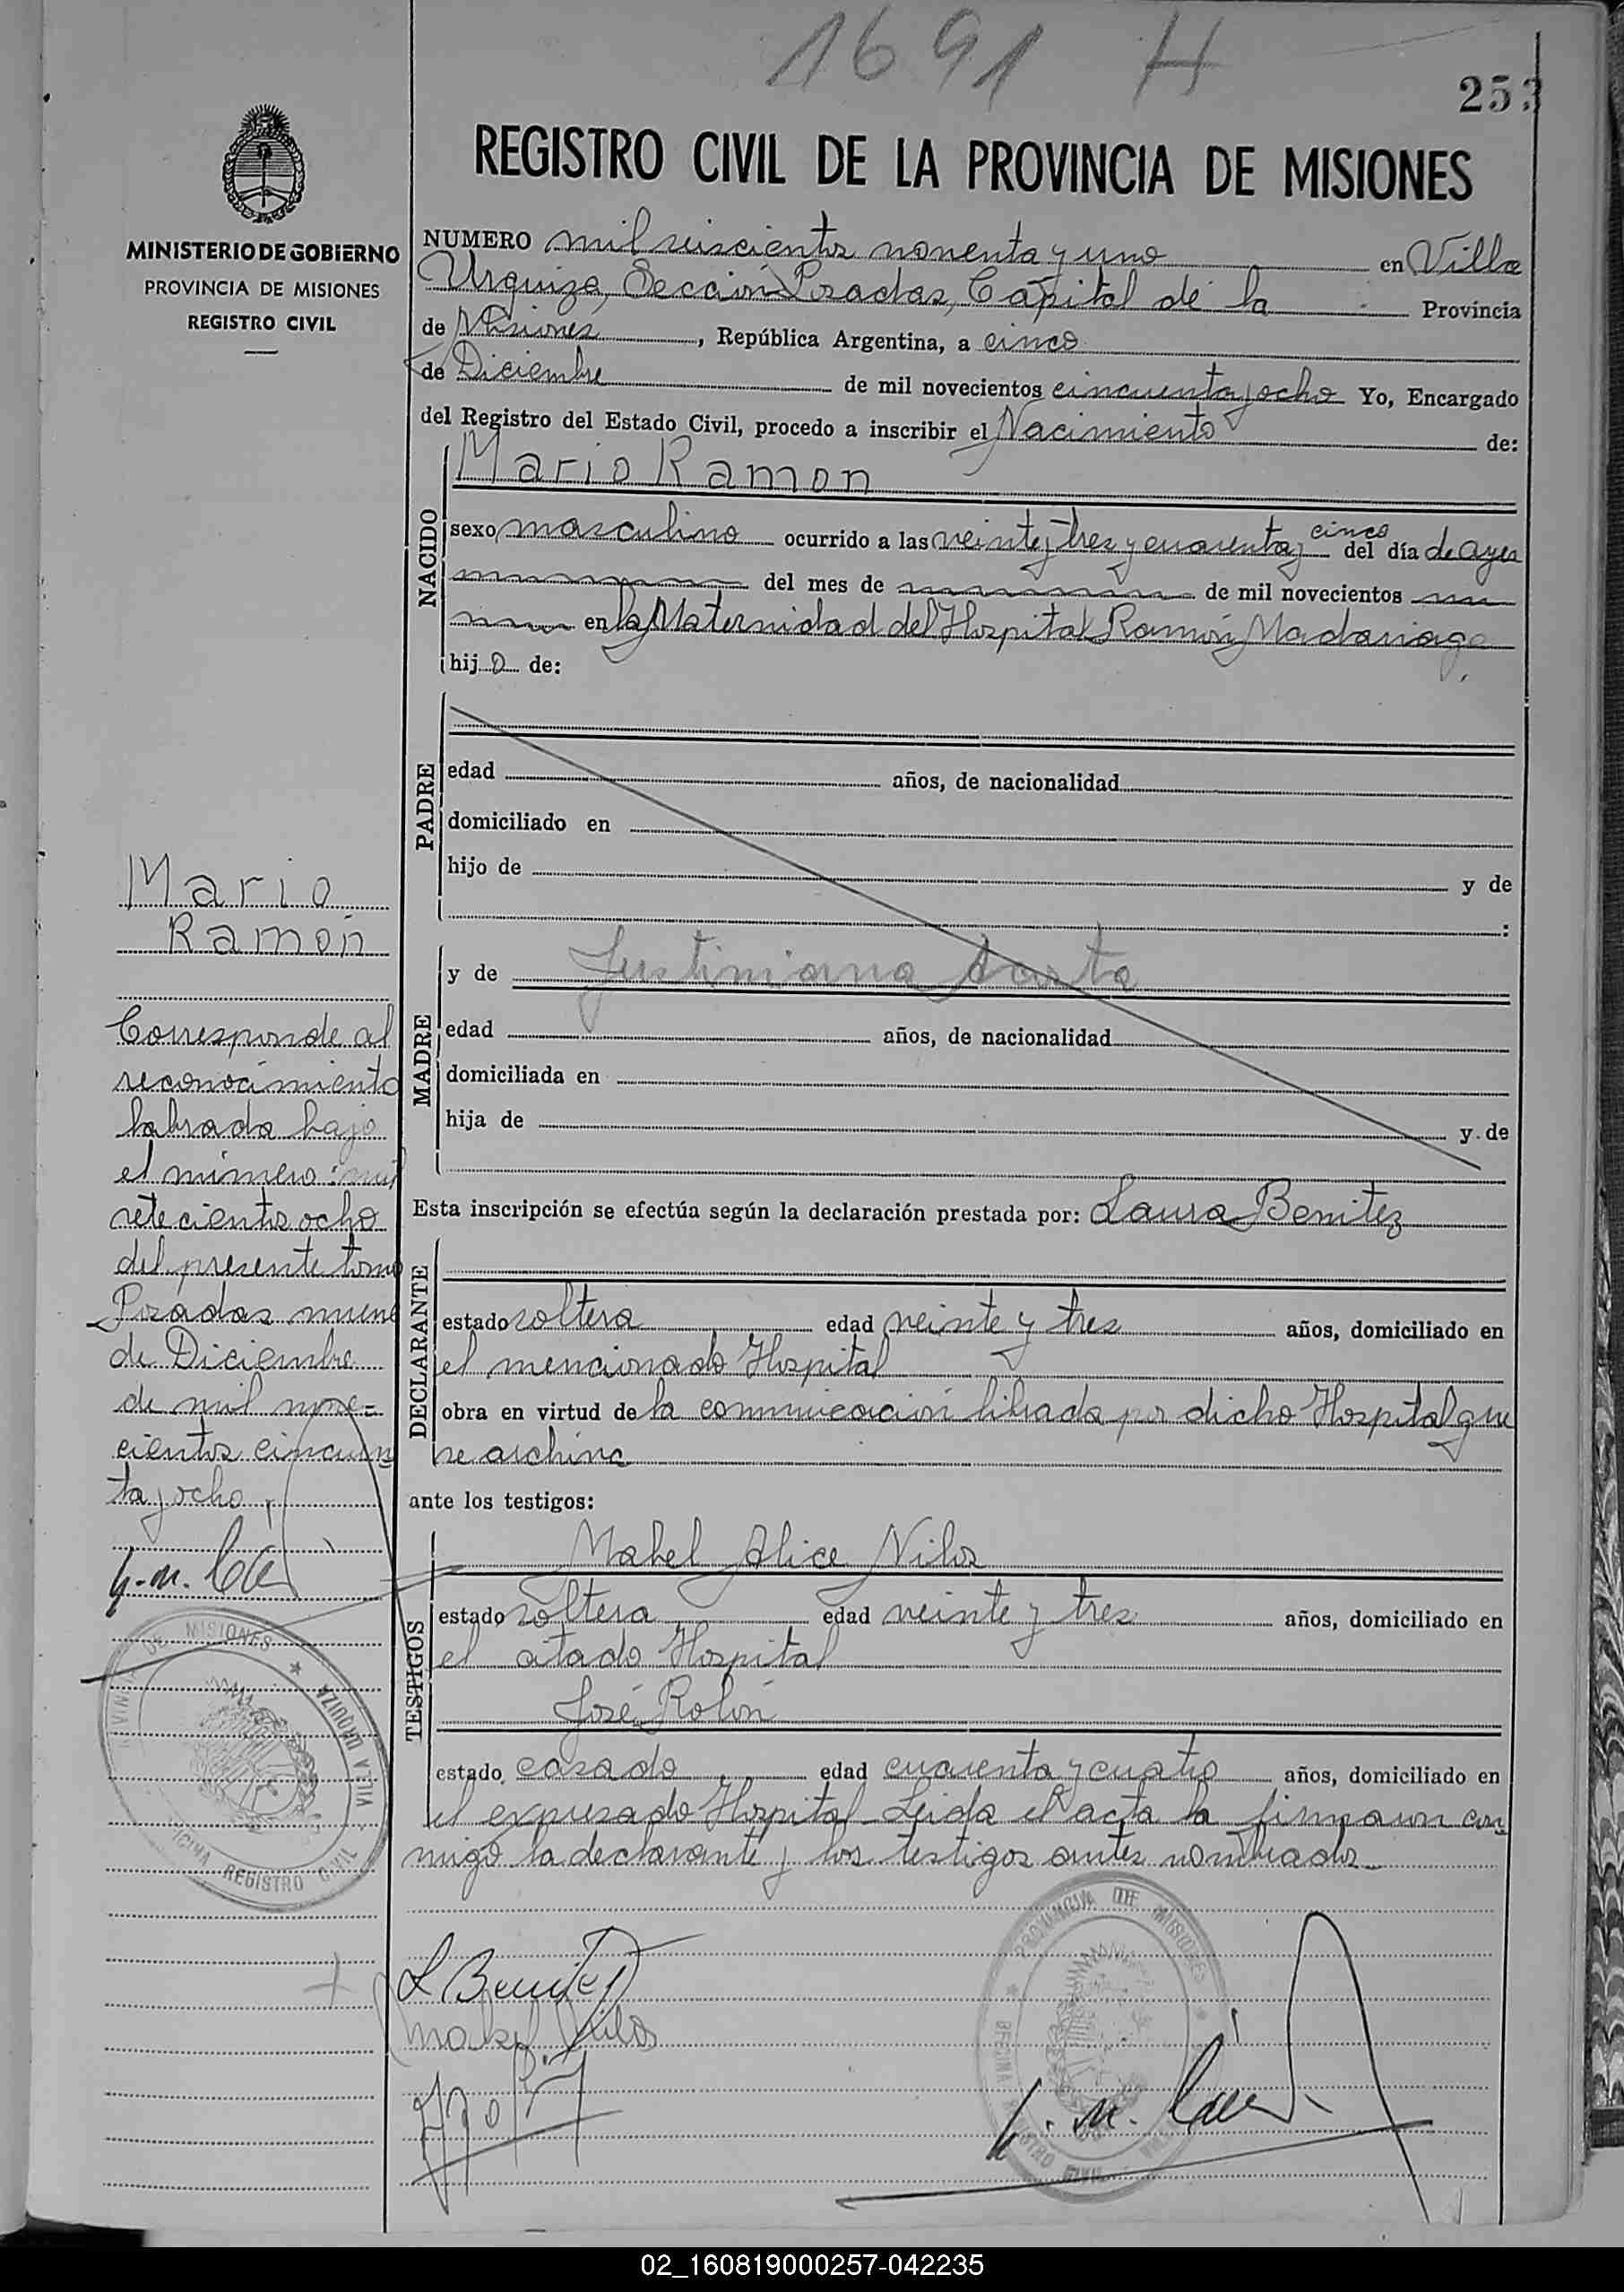 1691 H
253
MINISTERIO DE GOBIERNO
PROVINCIA DE MISIONES
REGISTRO CIVIL
REGISTRO CIVIL DE LA PROVINCIA DE MISIONES
NUMERO mil seiscientos nonenta y uno en Villa
Urquiza, Sección Posadas, Capital de la Provincia
de Misiones, República Argentina, a cinco
de Diciembre de mil novecientos cincuenta y ocho Yo, Encargado
del Registro del Estado Civil, procedo a inscribir el Nacimiento de:
Mario Ramon
NACIDO
sexo masculino ocurrido a las veinte y tres y cuarenta y cinco del día de ayer
del mes de de mil novecientos
en la Maternidad del Hospital Ramón Madariaga
hijo de:
PADRE
edad años, de nacionalidad
domiciliado en
hijo de y de
:
MADRE
y de Justiniana
edad años, de nacionalidad
domiciliada en
hija de y de
Esta inscripción se efectúa según la declaración prestada por: Laura Benitez
DECLARANTE
estado soltera edad veinte y tres años, domiciliado en
el mencionado Hospital
obra en virtud de la comunicación librada por dicho Hospital que
se archiva
ante los testigos:
TESTIGOS
Mabel Alice Nilos
estado soltera edad veinte y tres años, domiciliado en
el citado Hospital
José Rolón
estado casado edad cuarenta y cuatro años, domiciliado en
el expresado Hospital Leida el acta la firmaron con
migo la declarante y los testigos antes nombrados
Mario
Ramon
Corresponde al
reconocimiento
labrada bajo
el número: mil
sete cientos ocho
del presente tomo
Posadas nueve
de Diciembre
de mil nove=
cientos cincuen
ta y ocho
PROVINCIA DE MISIONES
VILLA URQUIZA
OFICINA REGISTRO CIVIL
L Benitez
Mabel Nilos
PROVINCIA DE MISIONES
02_160819000257-042235